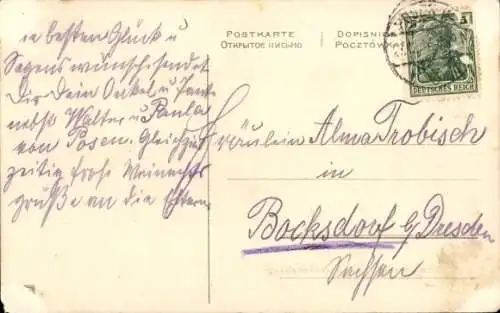 POSTKARTE
DOPISNICE
ОТКРЫТОЕ ПИСЬМО
POCZTÓWKA
5
DEUTSCHES REICH
die besten Glück u
Segenswünsche sendet
Dir Dein Onkel u. Tante
nebst Walter u. Paula
von Posen. Gleich
zeitig frohe Weinachts
grüße an die Eltern
Fräulein Alma Trobisch
in
Bocksdorf b/ Dresden
Sachsen